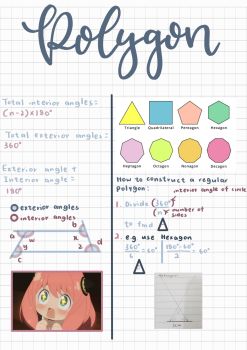 Polygon
Total interior angles:
(n-2)×180°
Total exterior angles:
360°
Exterior angle +
Interior angle =
180°
exterior angles
interior angles
a
b
w
x
y
z
c
d
Triangle Quadrilateral Pentagon Hexagon
Heptagon Octagon Nonagon Decagon
How to construct a regular
Polygon:
interior angle of circle
1. Divide (360°)
(n) number of
sides
to find
2. e.g use Hexagon
360°
6
= 60°
= 60°